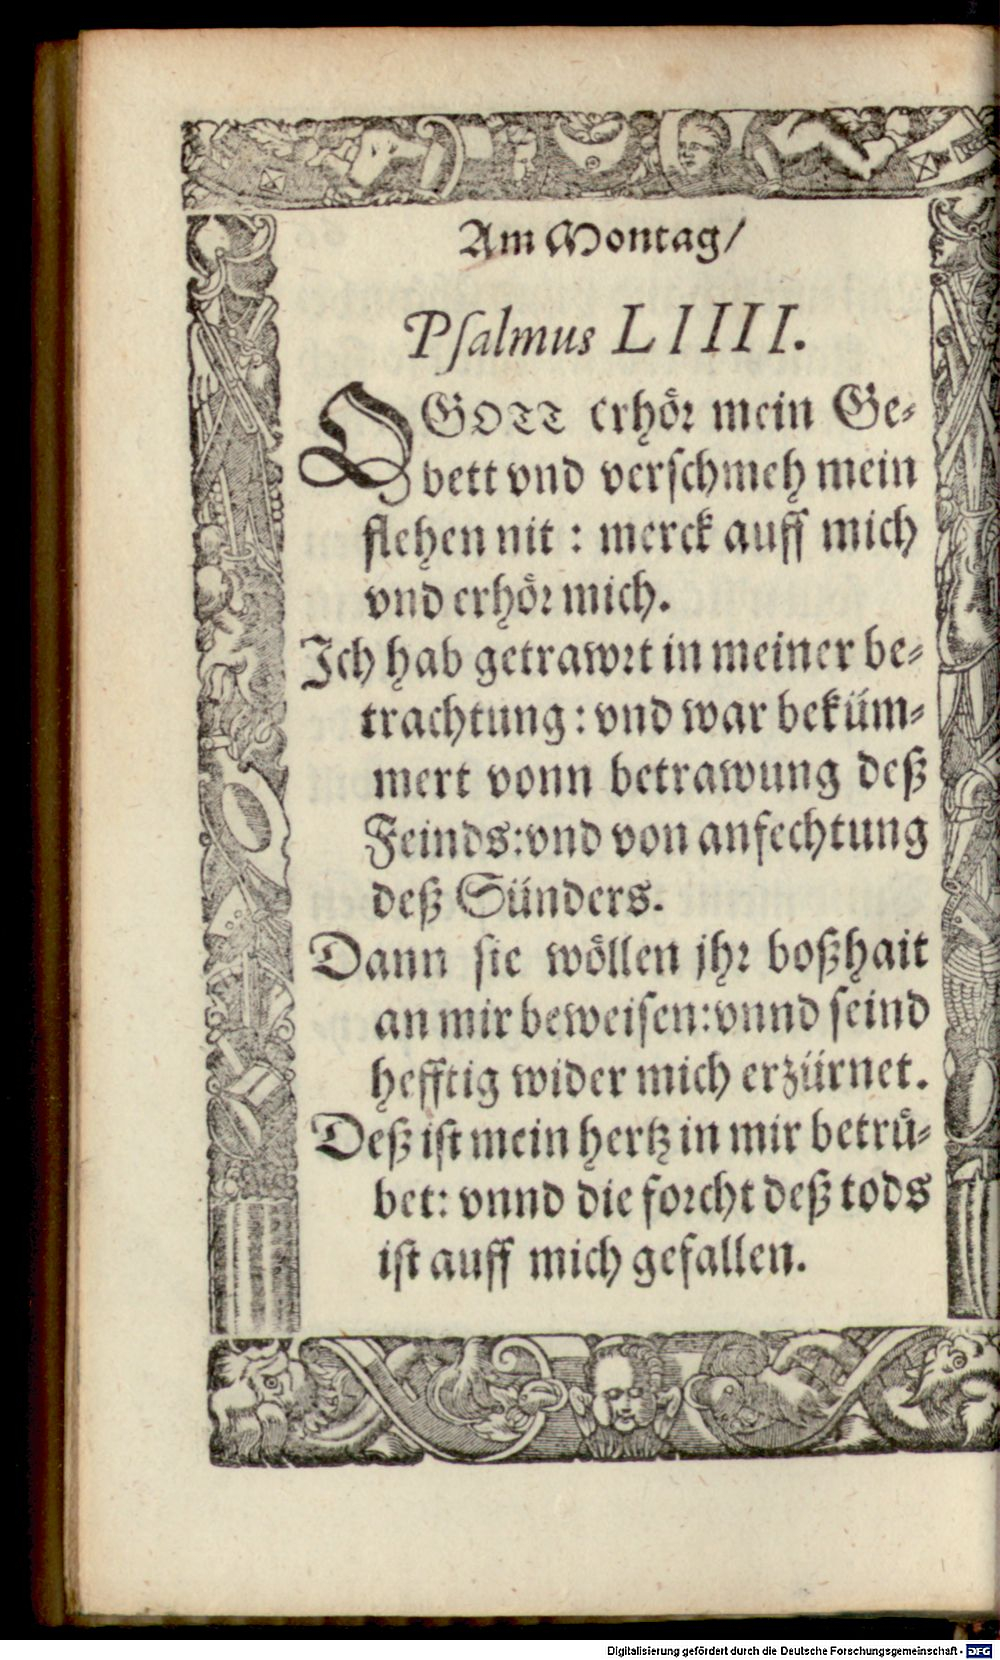 Am Montag/
Psalmus LIIII.
O GOTT erhör mein Ge-
bett vnd verschmeh mein
flehen nit : merck auff mich
vnd erhör mich.
Ich hab getrawrt in meiner be-
trachtung : vnd war beküm-
mert vonn betrawung deß
Feinds: vnd von anfechtung
deß Sünders.
Dann sie wöllen jhr boßhait
an mir beweisen: vnnd seind
hefftig wider mich erzürnet.
Deß ist mein hertz in mir betrü-
bet: vnnd die forcht deß tods
ist auff mich gefallen.
Digitalisierung gefördert durch die Deutsche Forschungsgemeinschaft - DFG